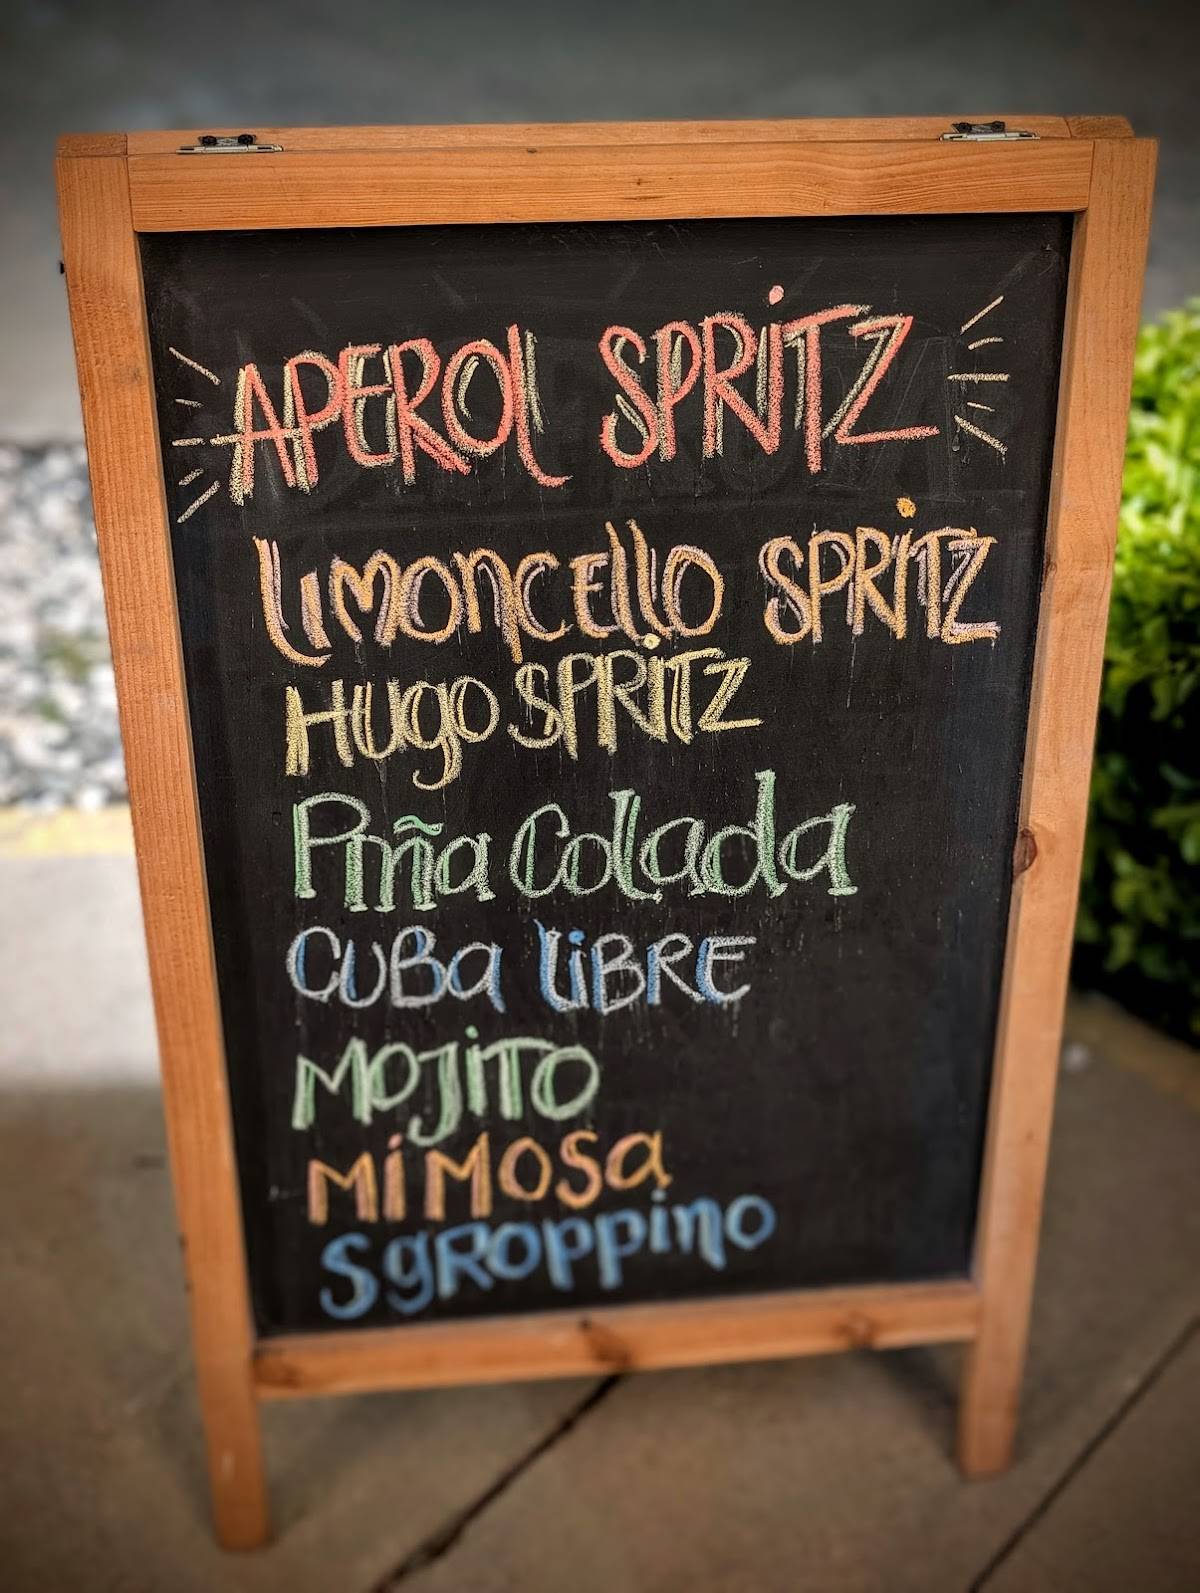 APEROL SPRITZ
LIMONCELLO SPRITZ
HUGO SPRITZ
Piña Colada
CUBA LIBRE
MOJITO
MIMOSA
SGROPPINO